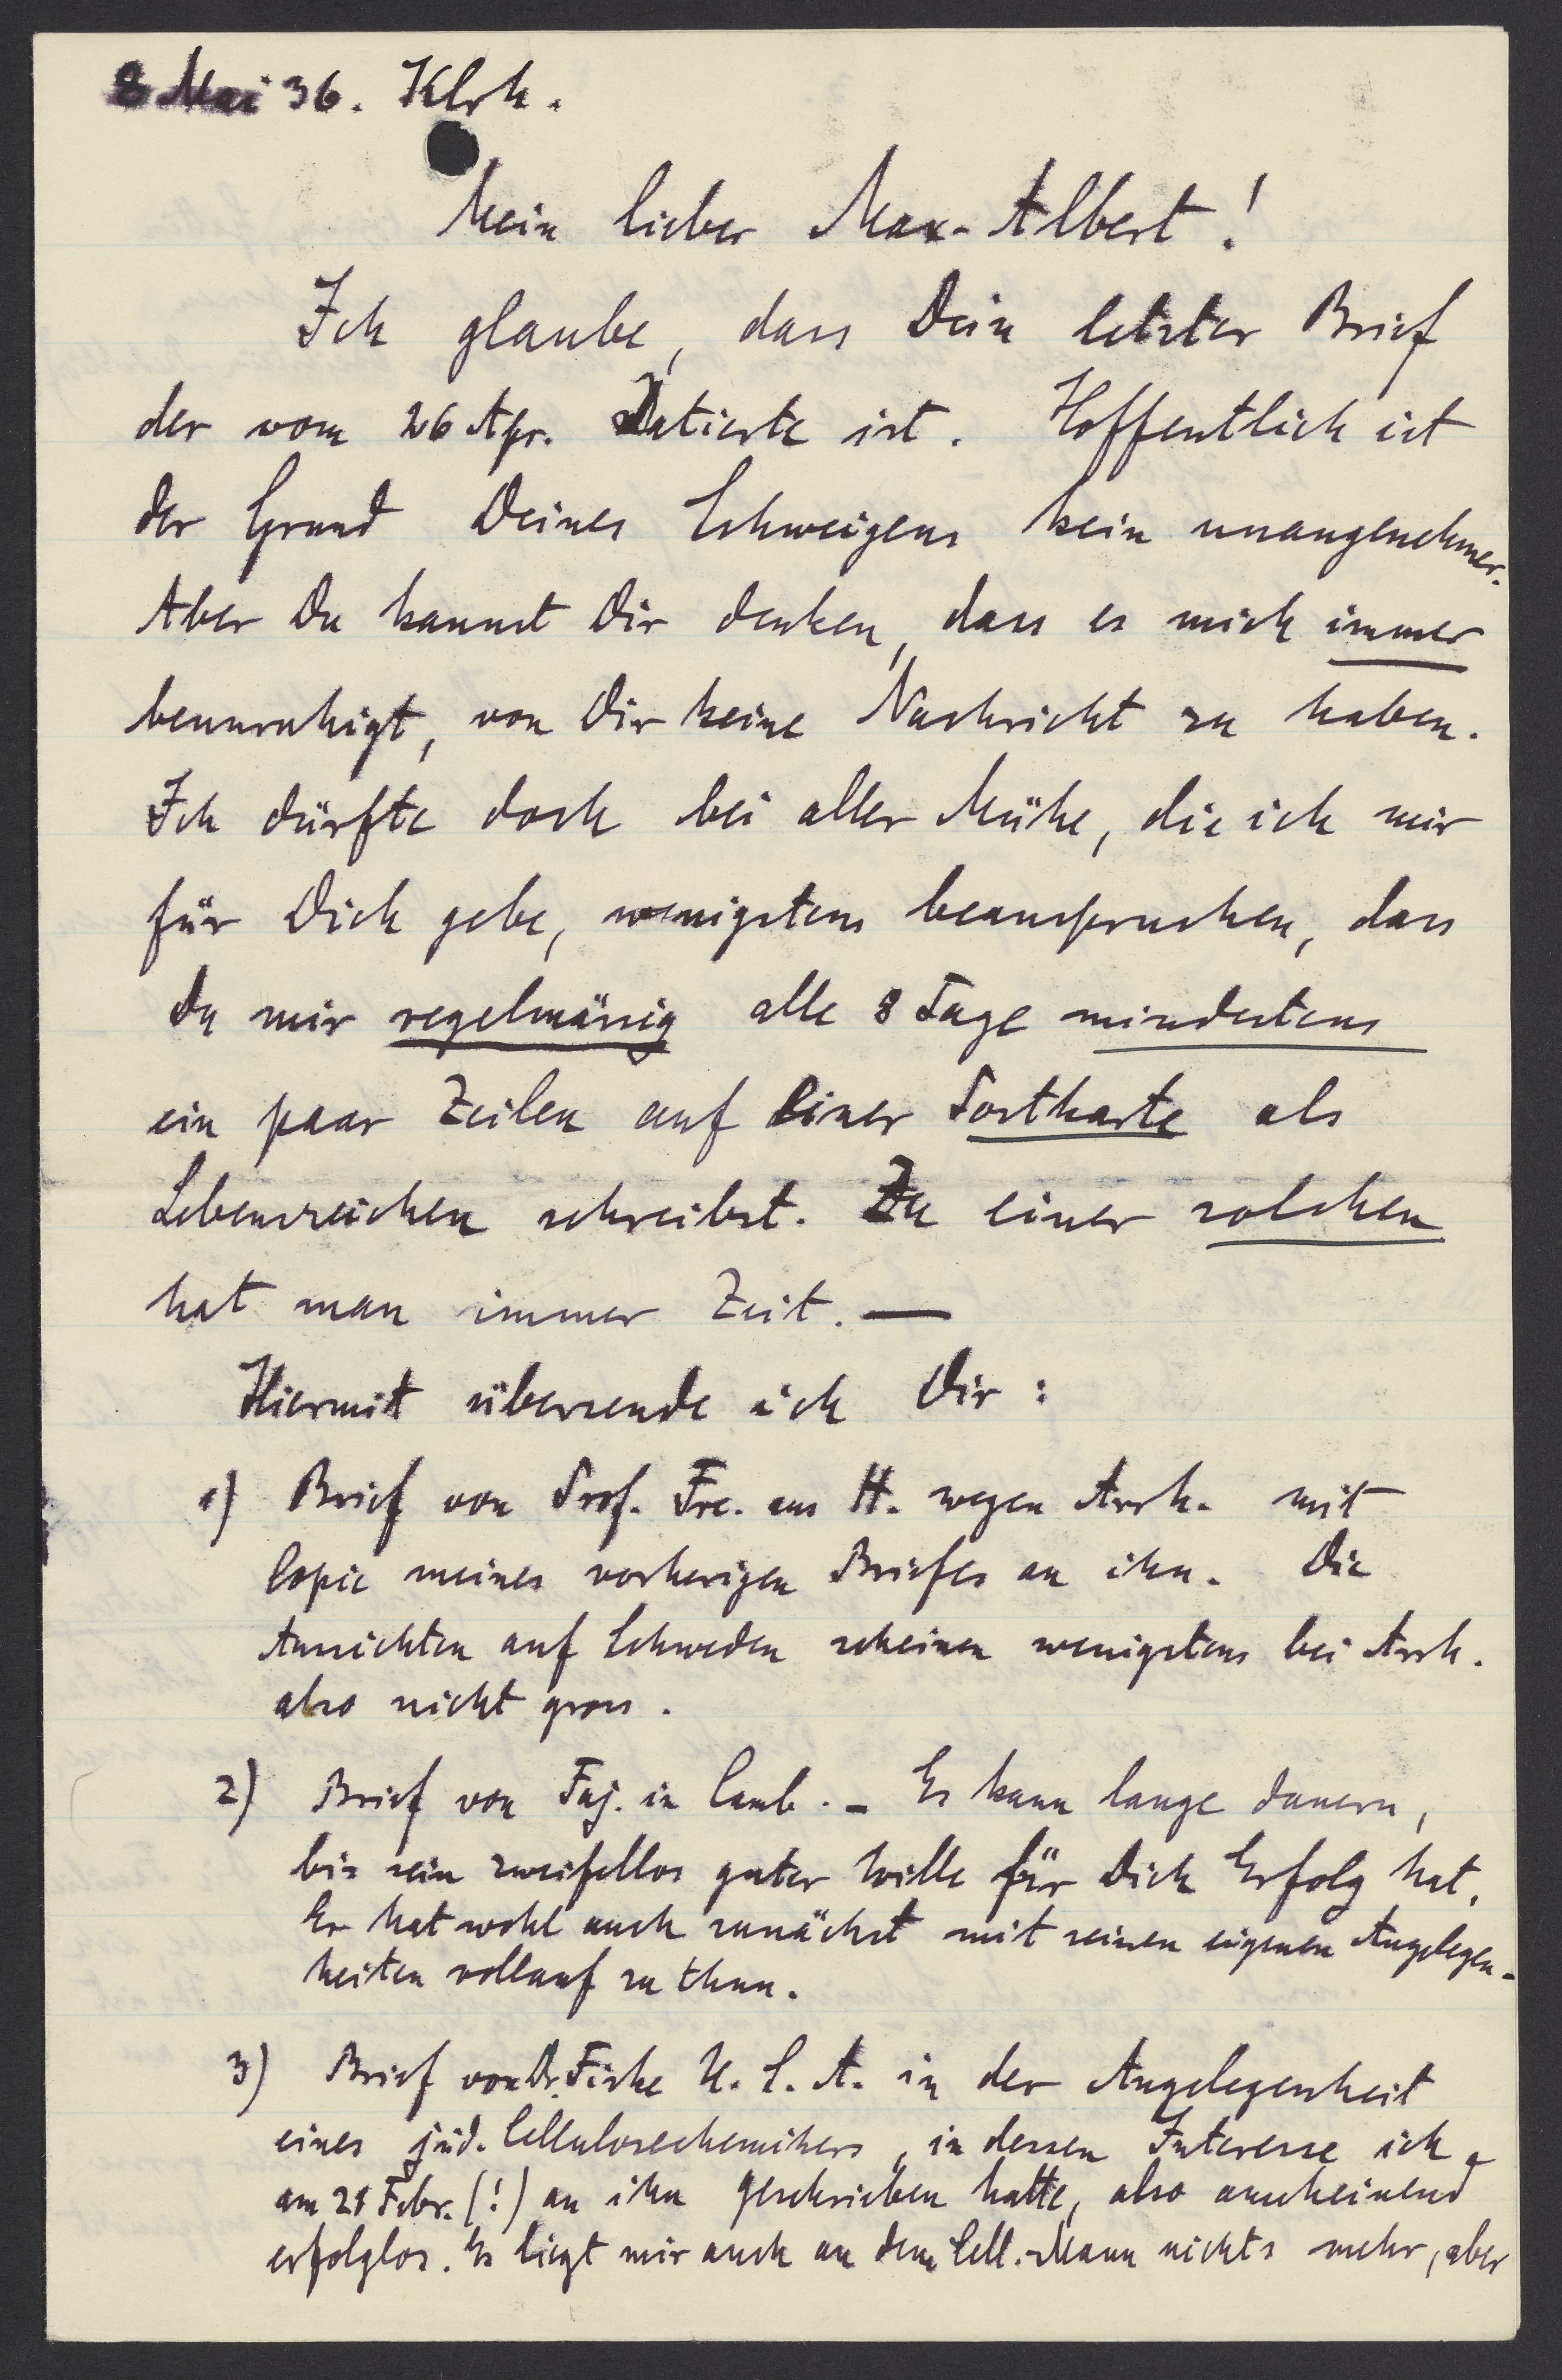 8 Mai 36. Klrh.
Mein lieber Max-Albert!
Ich glaube, dass Dein letzter Brief
der vom 26 Apr. Datierte ist. Hoffentlich ist
der Grund Deines Schweigens kein unangenehmer.
Aber Du kannst Dir denken, dass es mich immer
beunruhigt, von Dir keine Nachricht zu haben.
Ich dürfte doch bei aller Mühe, die ich mir
für Dich gebe, wenigstens beanspruchen, dass
Du mir regelmässig alle 8 Tage mindestens
ein paar Zeilen auf einer Postkarte als
Lebenszeichen schreibst. Zu einer solchen
hat man immer Zeit. —
Hiermit übersende ich Dir:
1) Brief von Prof. Fre. aus H. wegen Arrh. mit
Copie meines vorherigen Briefes an ihn. Die
Aussichten auf Schweden scheinen wenigstens bei Arrh.
also nicht gross.
2) Brief von Faj. in Camb. - Es kann lange dauern,
bis sein zweifellos guter Wille für Dich Erfolg hat.
Er hat wohl auch zunächst mit seinen eigenen Angelegen-
heiten vollauf zu thun.
3) Brief von Dr. Fiske U. S. A. in der Angelegenheit
eines jüd. Cellulosechemikers, in dessen Interesse ich
am 21 Febr. (!) an ihn geschrieben hatte, also anscheinend
erfolglos. Es liegt mir auch an dem Cell.-Mann nichts mehr, aber